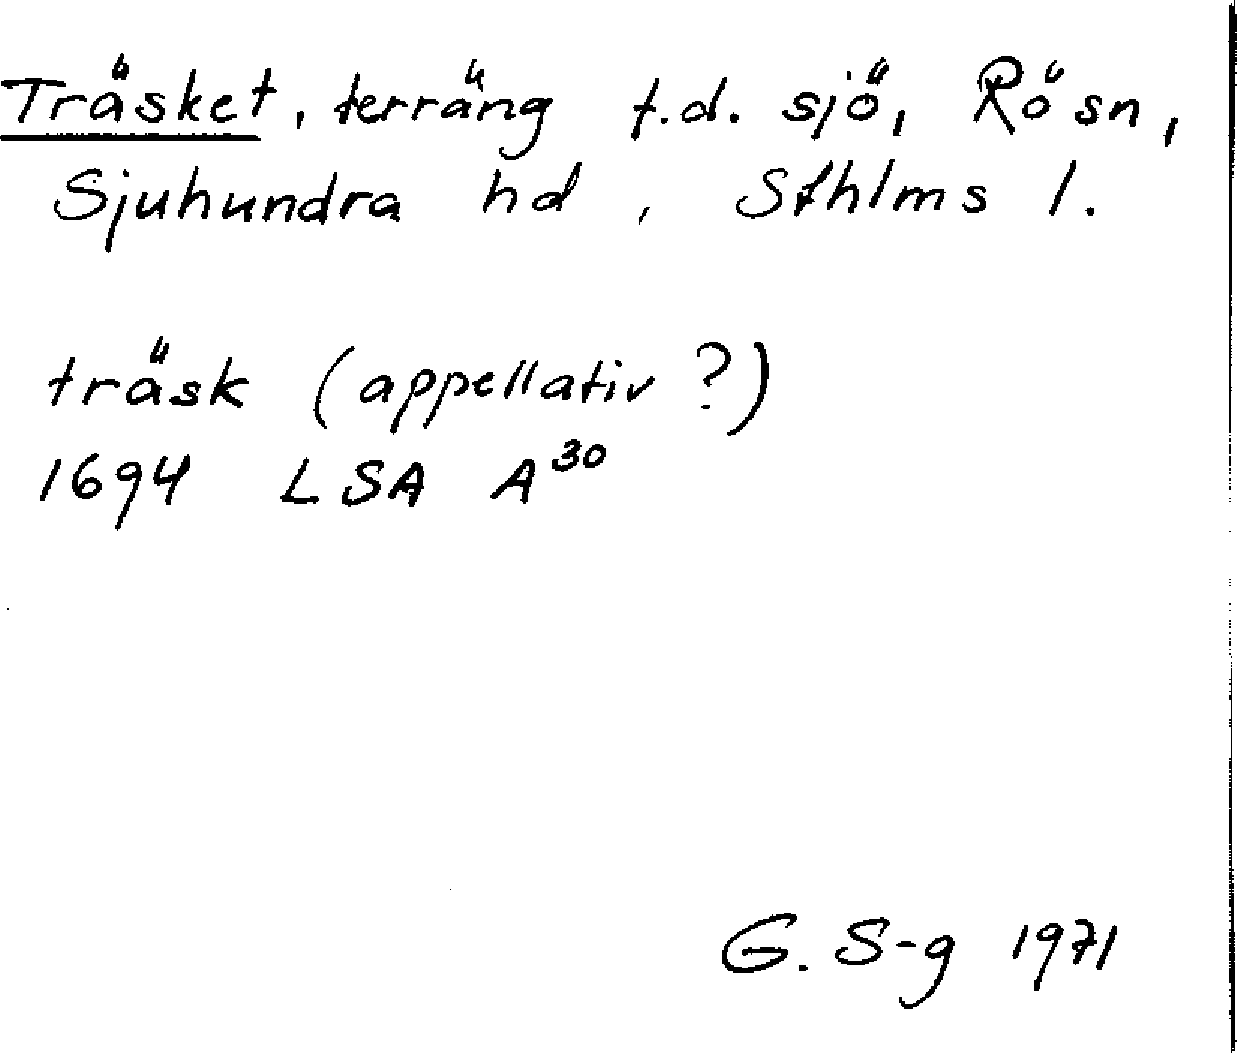 Träsket, terräng f.d. sjö, Rö sn,
Sjuhundra hd, Sthlms l.
träsk (appellativ?)
1694 LSA A30
G. S-g 1971